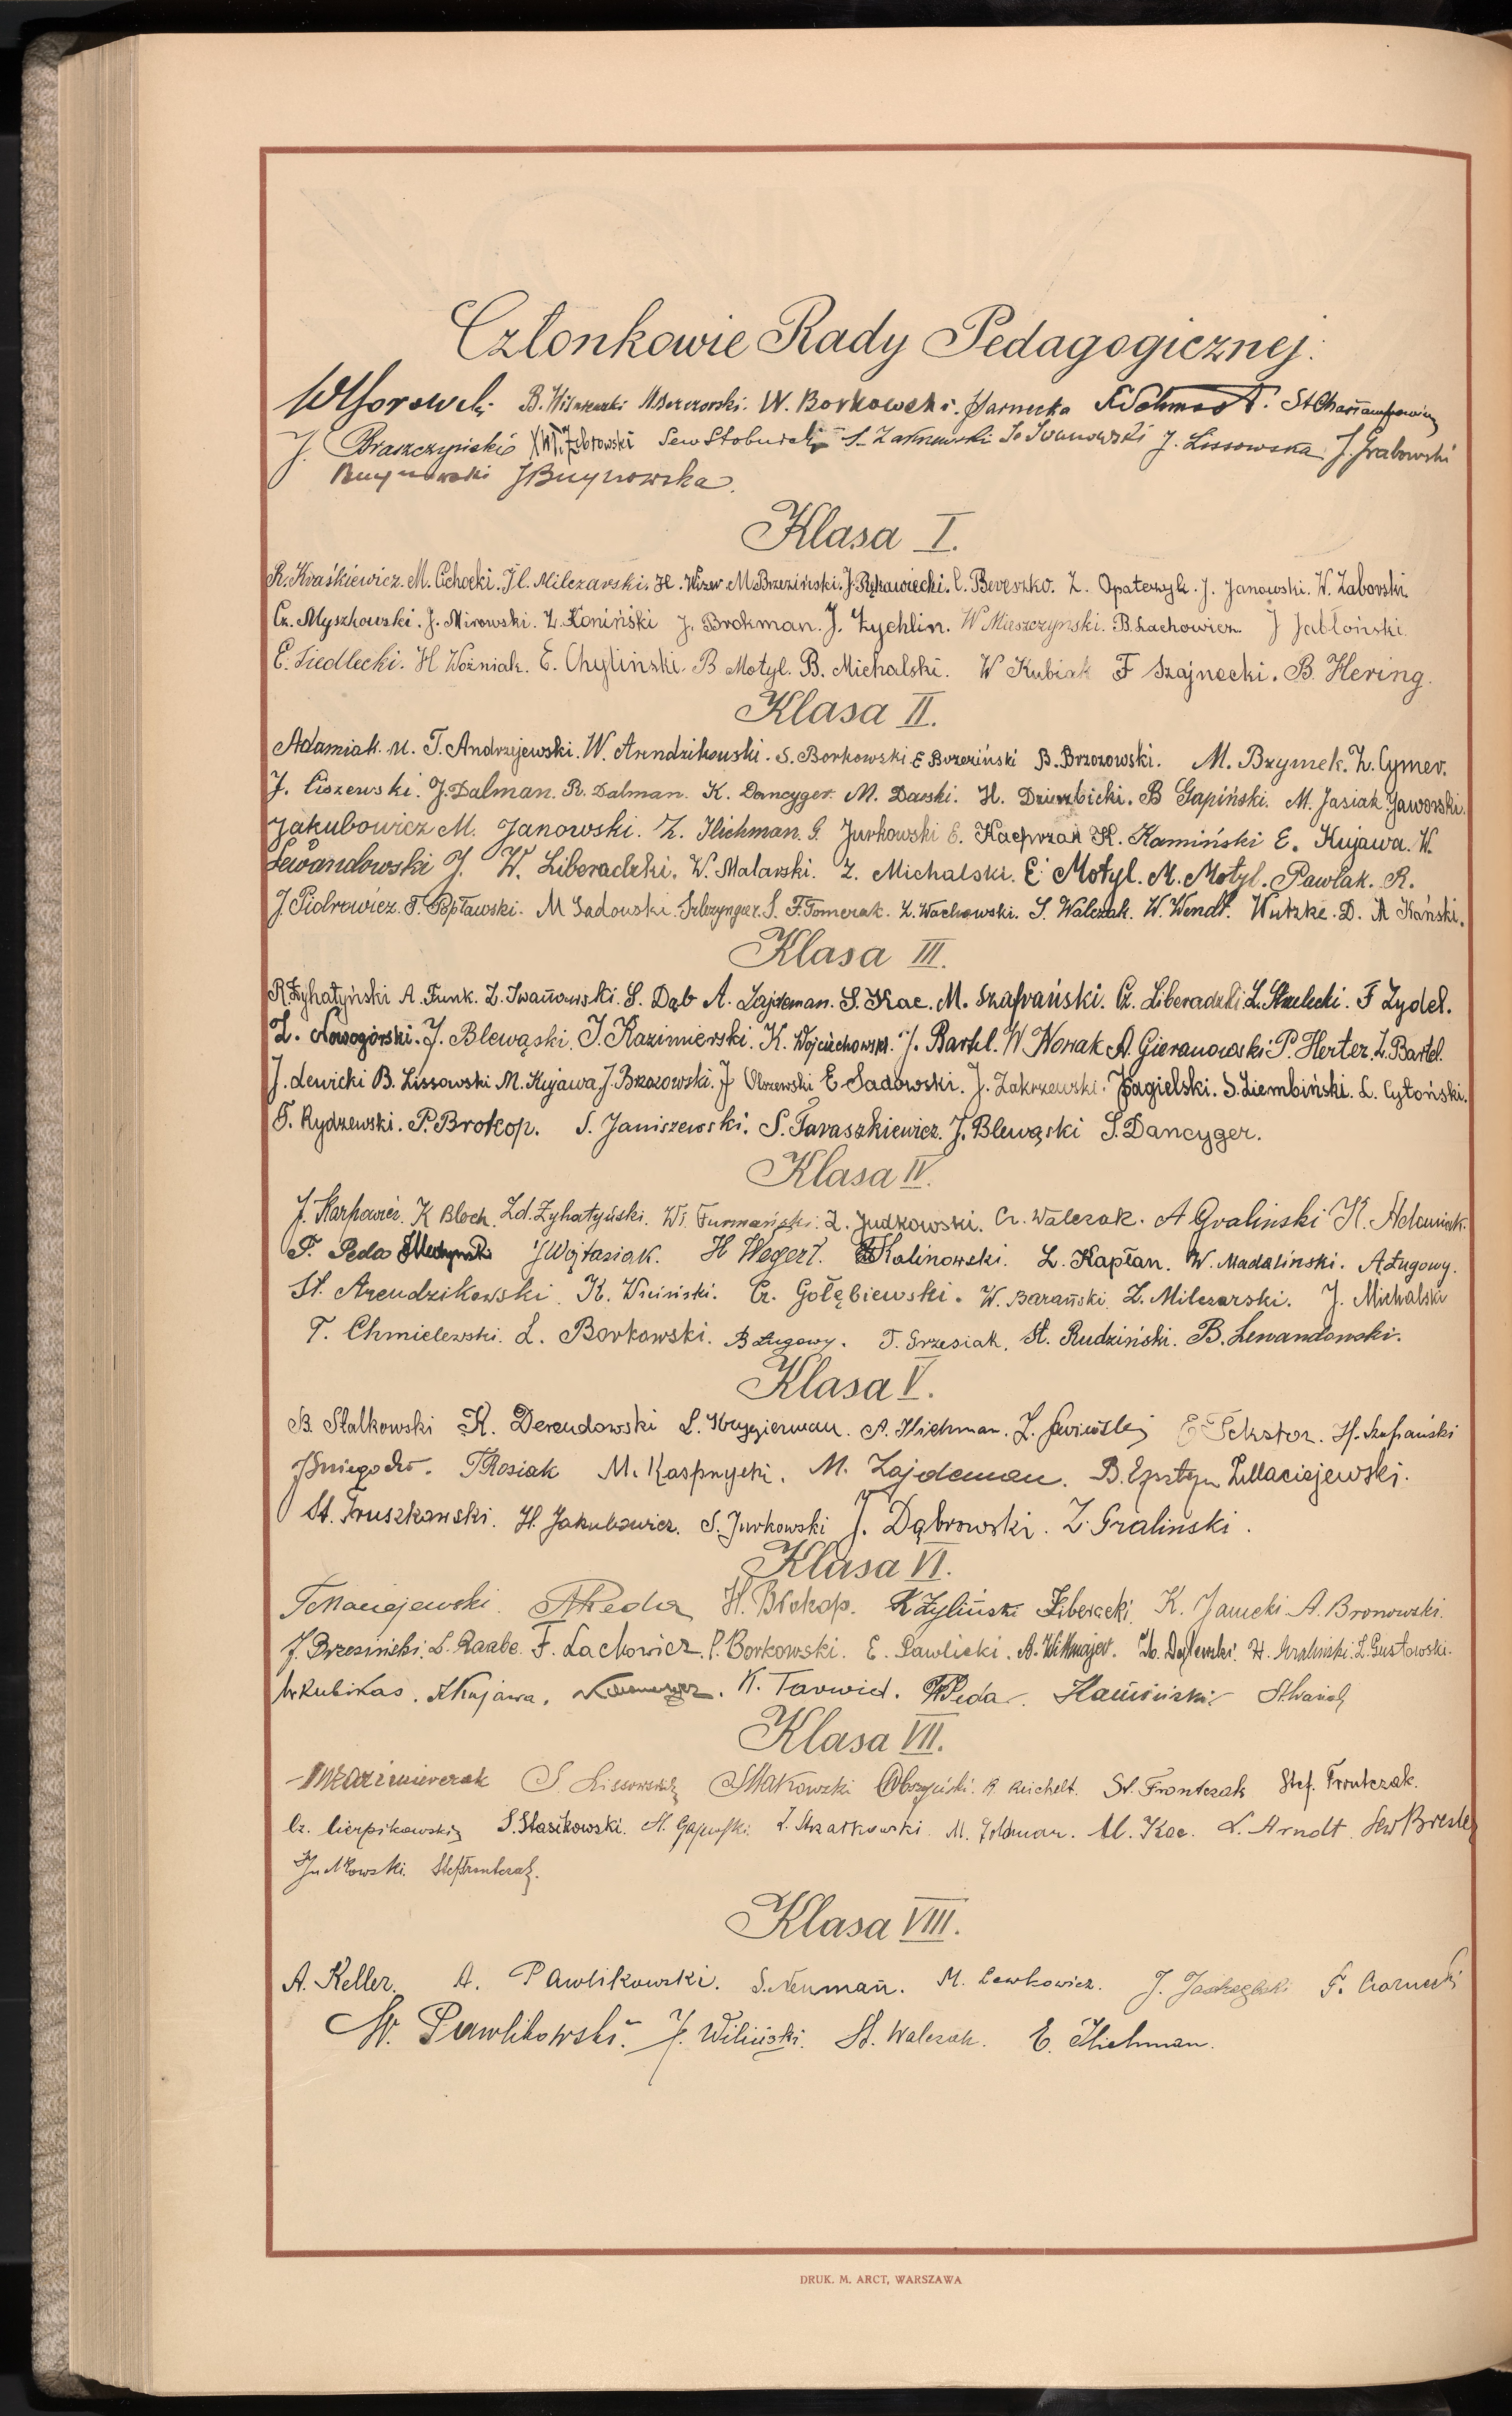 Członkowie Rady Pedagogicznej:
B. W. Borkowski. St
J. Braszczyński J. Lissowska J. Grabowski
JBuynowska.
Klasa I.
R. Kraśkiewicz. M. Cichocki. H. Milczarski. H. Wizer. M. Brzeziński. J. Rękawiecki. C. Bereszko. Z. Opatczyk. J. Janowski. W. Zaborski.
Cz. Myszkowski. J. Mirowski. Z. Koniński J. Brokman. J. Żychlin. W Miaszczynski. B. Lachowicz. J Jabłoński.
E. Siedlecki. H Woźniak. E. Chyliński. B Motyl. B. Michalski. W Kubiak F Szajnecki. B. Hering.
Klasa II.
Adamiak. M. T. Andrzejewski. W. Arendzikowski. S. Borkowski E Brzeziński B. Brzozowski. M. Bzymek. Z. Cymer.
J. Ciszewski. J. Dalman. R. Dalman. K. Dancyger. M. Darski. H. Dzierzbicki. B Gapiński. M. Jasiak. Jaworski.
Jakubowicz M. Janowski. Z. Ilichman. G. Jurkowski E. Kacprzak K. Kamiński E. Kujawa. W.
Lewandowski J. W. Liberadzki. W. Malarski. Z. Michalski. E. Motyl. M. Motyl. Pawlak. R.
J. Piotrowicz. T. Popławski. M Sadowski. Szlezynger. S. F. Tomerak. Z. Wachowski. S. Walczak. W. Wendt. Wutzke. D. M Kański.
Klasa III.
R. Żyhatyński A. Funk. Z. Iwanowski. S. Dąb A. Zajdeman. S. Kac. M. Szafrański. Cz. Liberadzki Z. Strzelecki. F Zydel.
Z. Nowogórski. J. Blewąski. J. Kazimierski. K. Wojciechowski. J. Bartel. W Nowak A. Gieranowski P. Herter. Z. Bartel.
J. Lewicki B. Lissowski M. Kujawa J. Brzozowski. J Olszewski E Sadowski. J. Zakrzewski. Jagielski. S. Ziembiński. L. Cytoński.
T. Rydzewski. P. Brokop. S. Janiszewski. S. Taraszkiewicz. J. Blewąski S. Dancyger.
Klasa IV.
J. Karpowicz. K Bloch. Zd. Żyhatyński. Wł. Furmański. Z. Judkowski. Cz. Walczak. A Graliński K. Adamiak.
F. Peda JWojtasiak. H Wegert. Kalinowski. L. Kapłan. W. Madaliński. A. Ługowy.
St. Arendzikowski. K. Wiciński. Cz. Gołębiewski. W. Barański. Z. Milczarski. J. Michalski
T. Chmielewski. L. Borkowski. B Ługowy. T. Grzesiak. St. Rudziński. B. Lewandowski.
Klasa V.
B. Stalkowski K. Derendowski L. Krygierman. A. Ilichman. E Teksztor. H. Szafrański
TRosiak M. Kasprzycki. M. Zajdeman. B. Epsztejn Z. Maciejewski.
St. Truszkowski. H. Jakubowicz. S. Jurkowski J. Dąbrowski. Z. Graliński.
Klasa VI.
TMaciejewski. Peda H. Brokop. K Żyliński Liberacki. K. Janecki A. Bronowski.
J. Brzeziński. L. Raabe. F. Lachowicz. P. Borkowski. E. Pawlicki. A. Wittmajer. H. Graliński. L. Gustowski.
W Kubikas. Kujawa. K. Tarwid. Peda. Kamiński
Klasa VII.
Kazimierczak S Lissowski SMakowski R. Reichelt. St. Frontczak Stef. Frontczak.
Cz. Cierpikowski S. Stasikowski. Z. Strzałkowski. M. Feldman. M. Kac. L. Arndt. Sew Bresler
Judkowski. Stef. Frontczak.
Klasa VIII.
A. Keller. A. Pawlikowski. S. Neuman. M. Lewkowicz. J. Jastrzębski F. Czarnecki
W. Pawlikowski. J. Wiliński. St. Walczak. E. Ilichman.
DRUK. M. ARCT, WARSZAWA